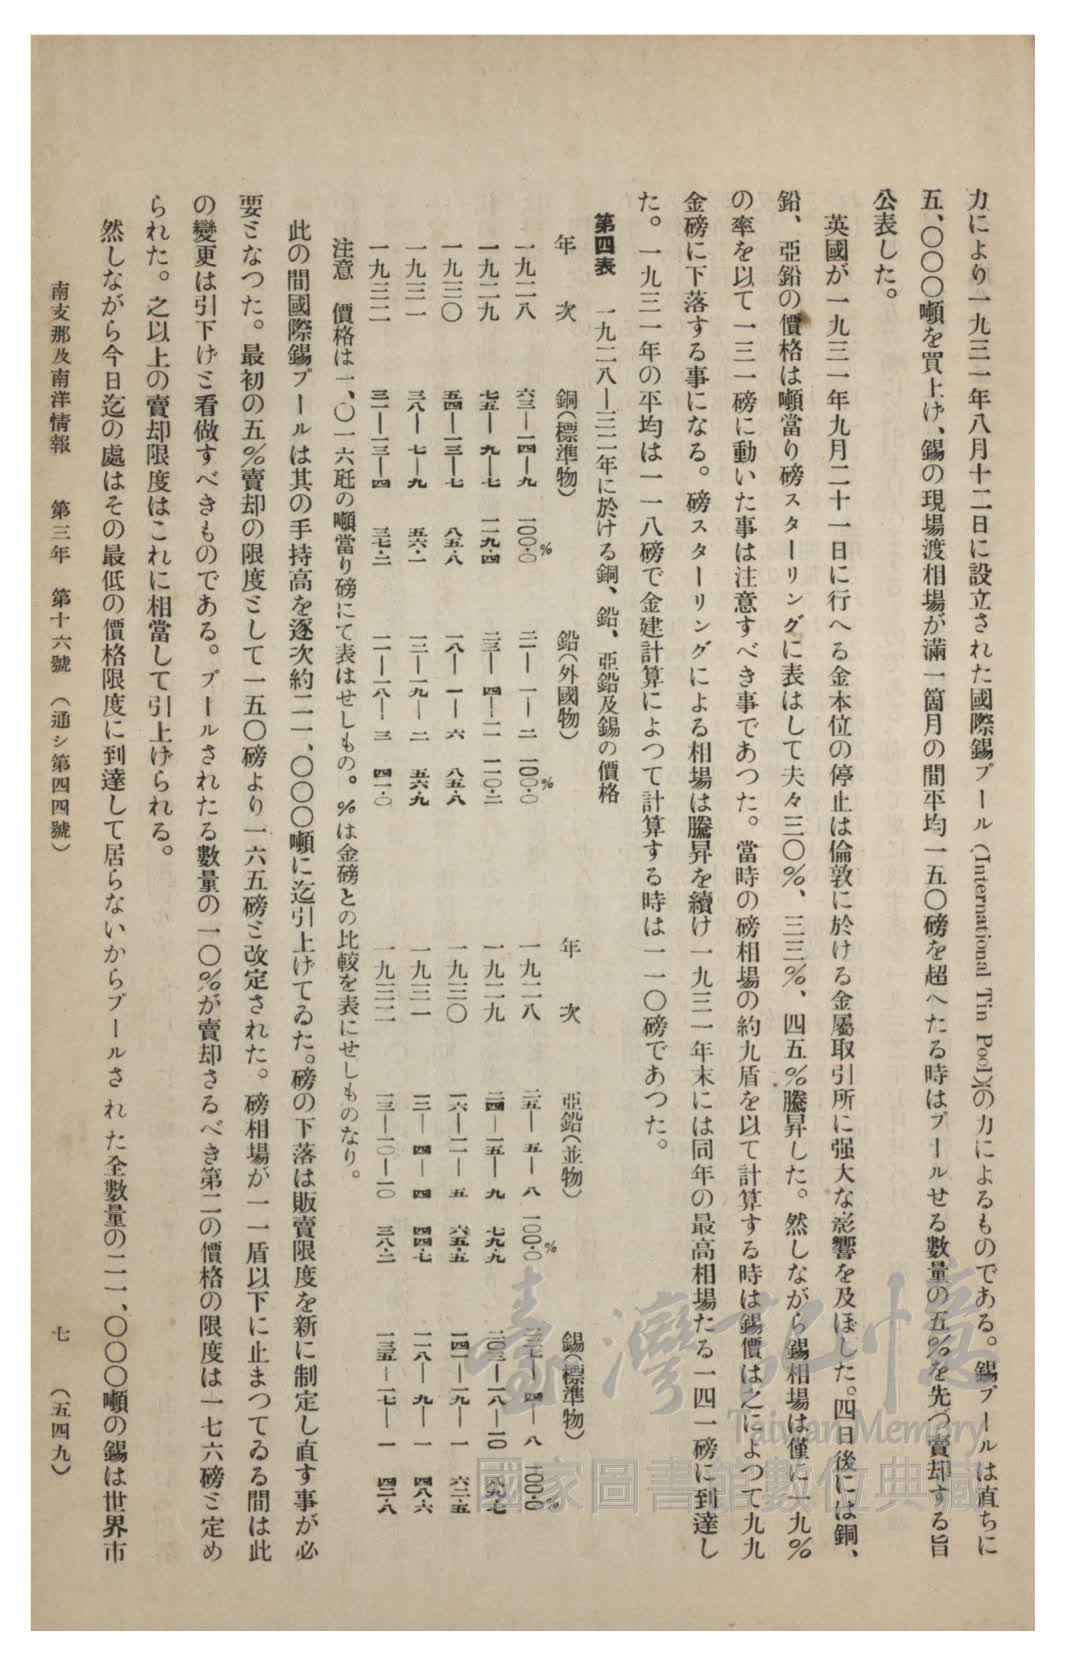 力により一九三一年八月十二日に設立された國際錫プール（International Tin Pool）の力によるものである。錫プールは直ちに
五、〇〇〇噸を買上げ、錫の現場渡相場が滿一箇月の間平均一五〇磅を超へたる時はプールせる數量の五％を先づ賣却する旨
公表した。
英國が一九三一年九月二十一日に行へる金本位の停止は倫敦に於ける金屬取引所に强大な影響を及ぼした。四日後には銅、
鉛、亞鉛の價格は噸當り磅スターリングに表はして夫々三〇％、三三％、四五％騰昇した。然しながら錫相場は僅に一九％
の率を以て一三一磅に動いた事は注意すべき事であつた。當時の磅相場の約九盾を以て計算する時は錫價は之によつて九九
金磅に下落する事になる。磅スターリングによる相場は騰昇を續け一九三一年末には同年の最高相場たる一四一磅に到達し
た。一九三一年の平均は一一八磅で金建計算によつて計算する時は一一〇磅であつた。
第四表　一九二八―三二年に於ける銅、鉛、亞鉛及錫の價格
年次　銅（標準物）　鉛（外國物）　年次　亞鉛（並物）　錫（標準物）
一九二八　六三―一四―九　一〇〇・〇％　二一―一―二　一〇〇・〇％　一九二八　二五―五―八　一〇〇・〇％　二二七―四―八　一〇〇・〇％
一九二九　七五―九―七　一一九・四　二三―四―一一　一一〇・二　一九二九　二四―一五―九　七九・九　二〇三―一八―一〇
一九三〇　五四―一三―七　八五・八　一八―一―六　八五・八　一九三〇　一六―一一―五　六五・五　一四一―一九―一　六二・五
一九三一　三八―七―九　五六・一　一二―一九―二　五六・九　一九三一　一二―四―四　四四・七　一一八―九―一　四八・六
一九三二　三一―一三―四　三七・二　一一―一八―三　四一・〇　一九三二　一三―一〇―一〇　三八・二　一三五―一七―一　四二・八
注意　價格は一、〇一六瓩の噸當り磅にて表はせしもの。％は金磅との比較を表にせしものなり。
此の間國際錫プールは其の手持高を逐次約二一、〇〇〇噸に迄引上げてゐた。磅の下落は販賣限度を新に制定し直す事が必
要となつた。最初の五％賣却の限度として一五〇磅より一六五磅と改定された。磅相場が一一盾以下に止まつてゐる間は此
の變更は引下げと看做すべきものである。プールされたる數量の一〇％が賣却さるべき第二の價格の限度は一七六磅と定め
られた。之以上の賣却限度はこれに相當して引上げられる。
然しながら今日迄の處はその最低の價格限度に到達して居らないからプールされた全數量の二一、〇〇〇噸の錫は世界市
南支那及南洋情報　第三年　第十六號　（通シ第四四號）　七　（五四九）
臺灣記憶
Taiwan Memory
國家圖書館數位典藏